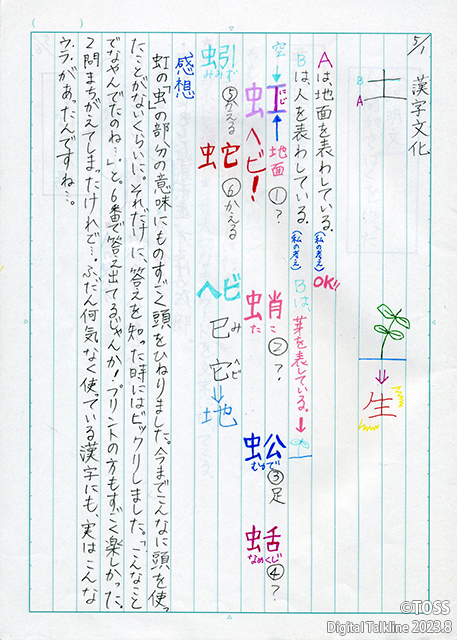 5/1 漢字文化
土
B
A
生
Aは地面を表わしている。(私の考え) OK!!
Bは人を表わしている。(私の考え)
Bは、芽を表している。
空
虹
にじ
地面
①?
ヘビ!
蛸
たこ
②?
蚣
むかで
③足
蛞
なめくじ
④?
蚓
みみず
⑤かえる
蛇
⑥かえる
ヘビ
巳
み
它
ヘビ
地
感想
虹の「虫」の部分の意味にものすごく頭をひねりました。今までこんなに頭を使っ
たことがないくらいに。それだけに、答えを知った時にはビックリしました。「こんなこと
でなやんでたのね…」と。6番で答え出てるじゃんか!プリントの方もすごく楽しかった。
2問まちがえてしまったけれど…。ふだん何気なく使っている漢字にも、実はこんな
ウラがあったんですね…。
©TOSS
Digital Talkline 2023.8